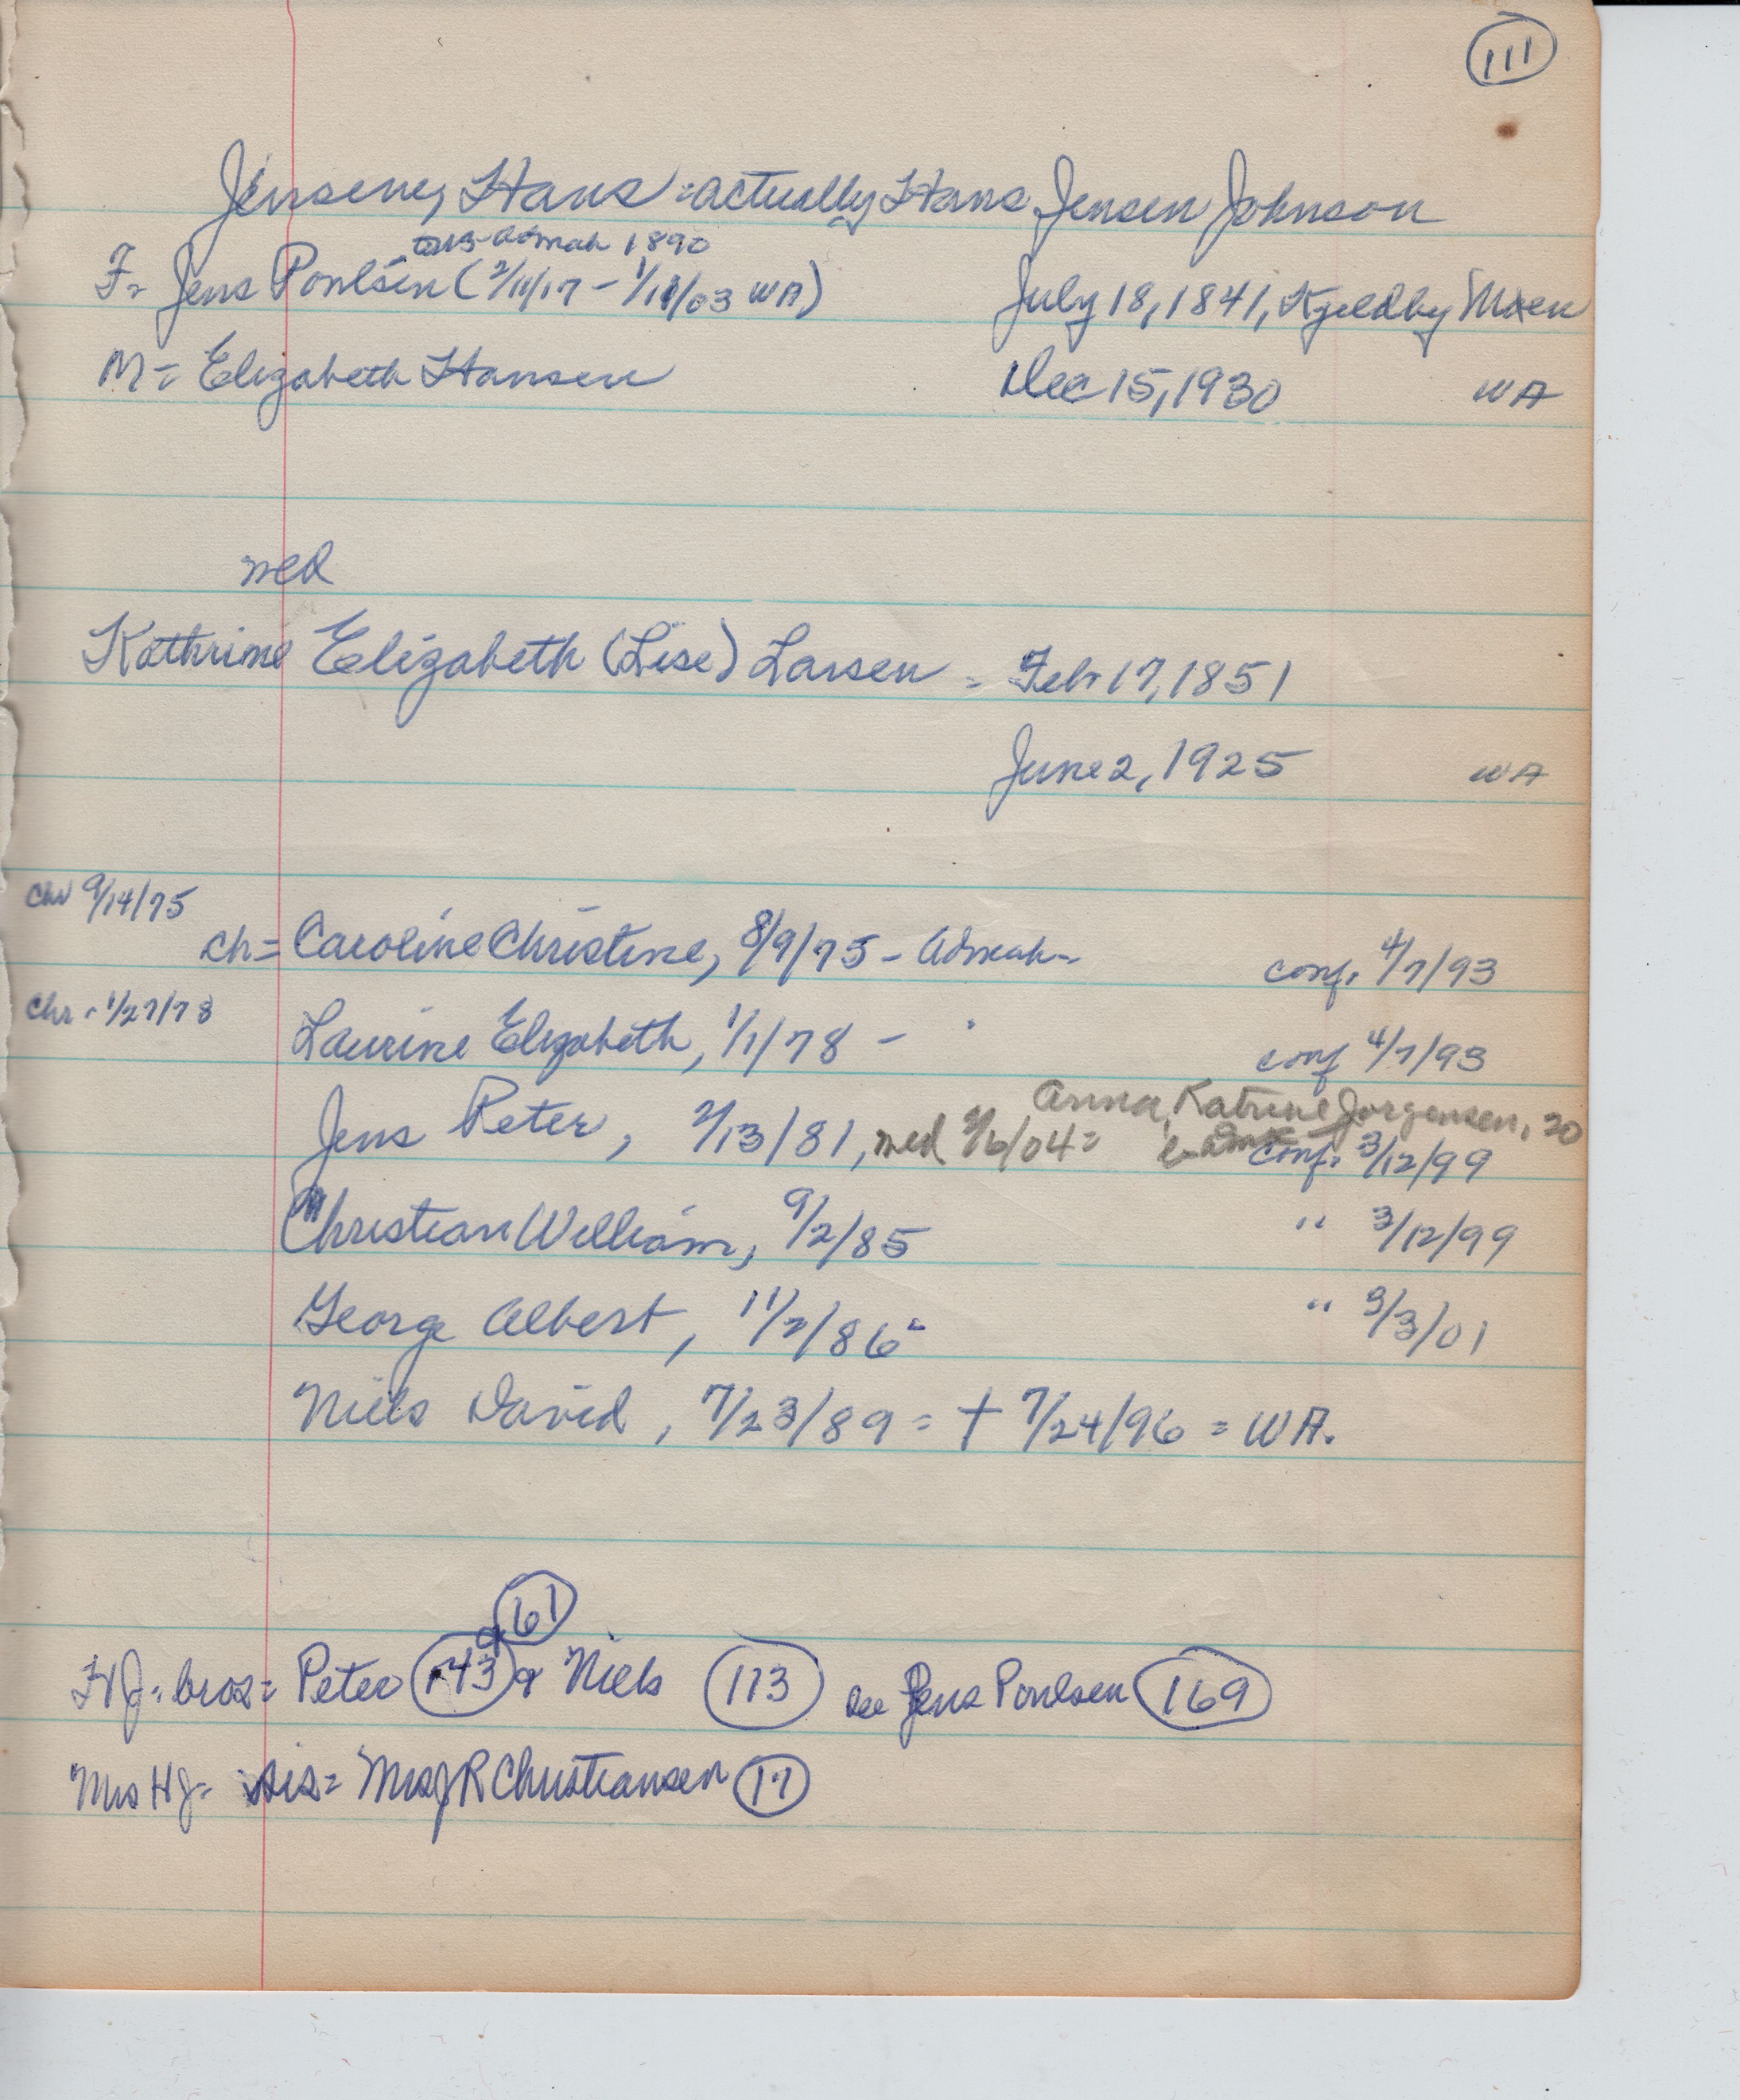 111
Jensen, Hans = actually Hans Jensen Johnson
Admah 1890
F = Jens Poulsen (2/11/17 - 1/11/03 WA) July 18, 1841, Kjeldby Møen
M = Elizabeth Hansen Dec 15, 1930 WA
med
Kathrine Elizabeth (Lise) Larsen - Feb 17, 1851
June 2, 1925 WA
Chr 9/14/75
Ch = Caroline Christine, 8/9/75 - Admah - conf. 4/7/93
Chr - 1/27/78
Laurine Elizabeth, 1/1/78 - " conf 4/7/93
Anna Katrine Jorgensen, 20
Jens Peter, 2/13/81, med 2/6/04 = conf. 3/12/99
Christian William, 9/2/85 " 3/12/99
George Albert, 11/2/86 " 3/3/01
Niels David, 7/23/89 = † 7/24/96 = WA.
61
HJ = bros = Peter 143 & Niels 113 see Jens Poulsen 169
Mrs HJ = sis = Mrs J R Christiansen 17